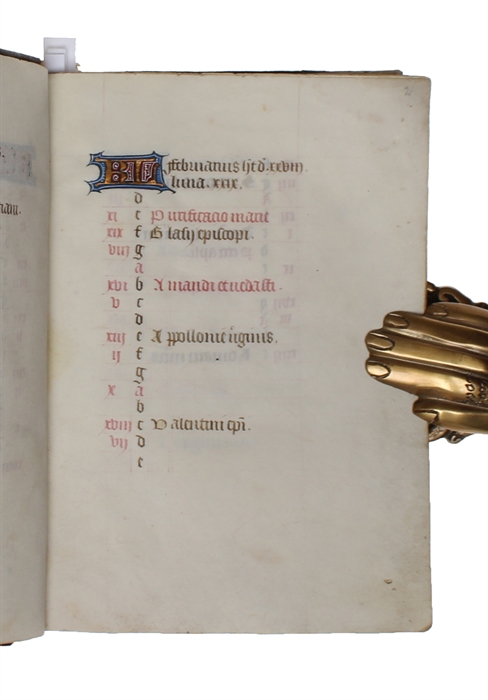 2
KL februarius ht d. xxviii.
luna. xxix.
d
xi e Purificatio marie
xix f Blasij episcopi.
viij g
a
xvi b Amandi et vedasti.
v c
d
xiij e Appollonie virginis.
ij f
g
x a
b
xviij c Valentini epi.
vij d
e